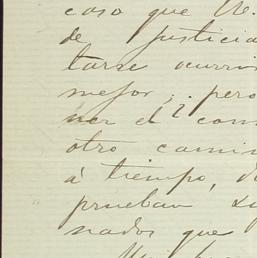 caso que V.
de justicia
tarse ocurri
mejor; pero
ner el com
otro camin
à tiempo, d
prueban
nados que